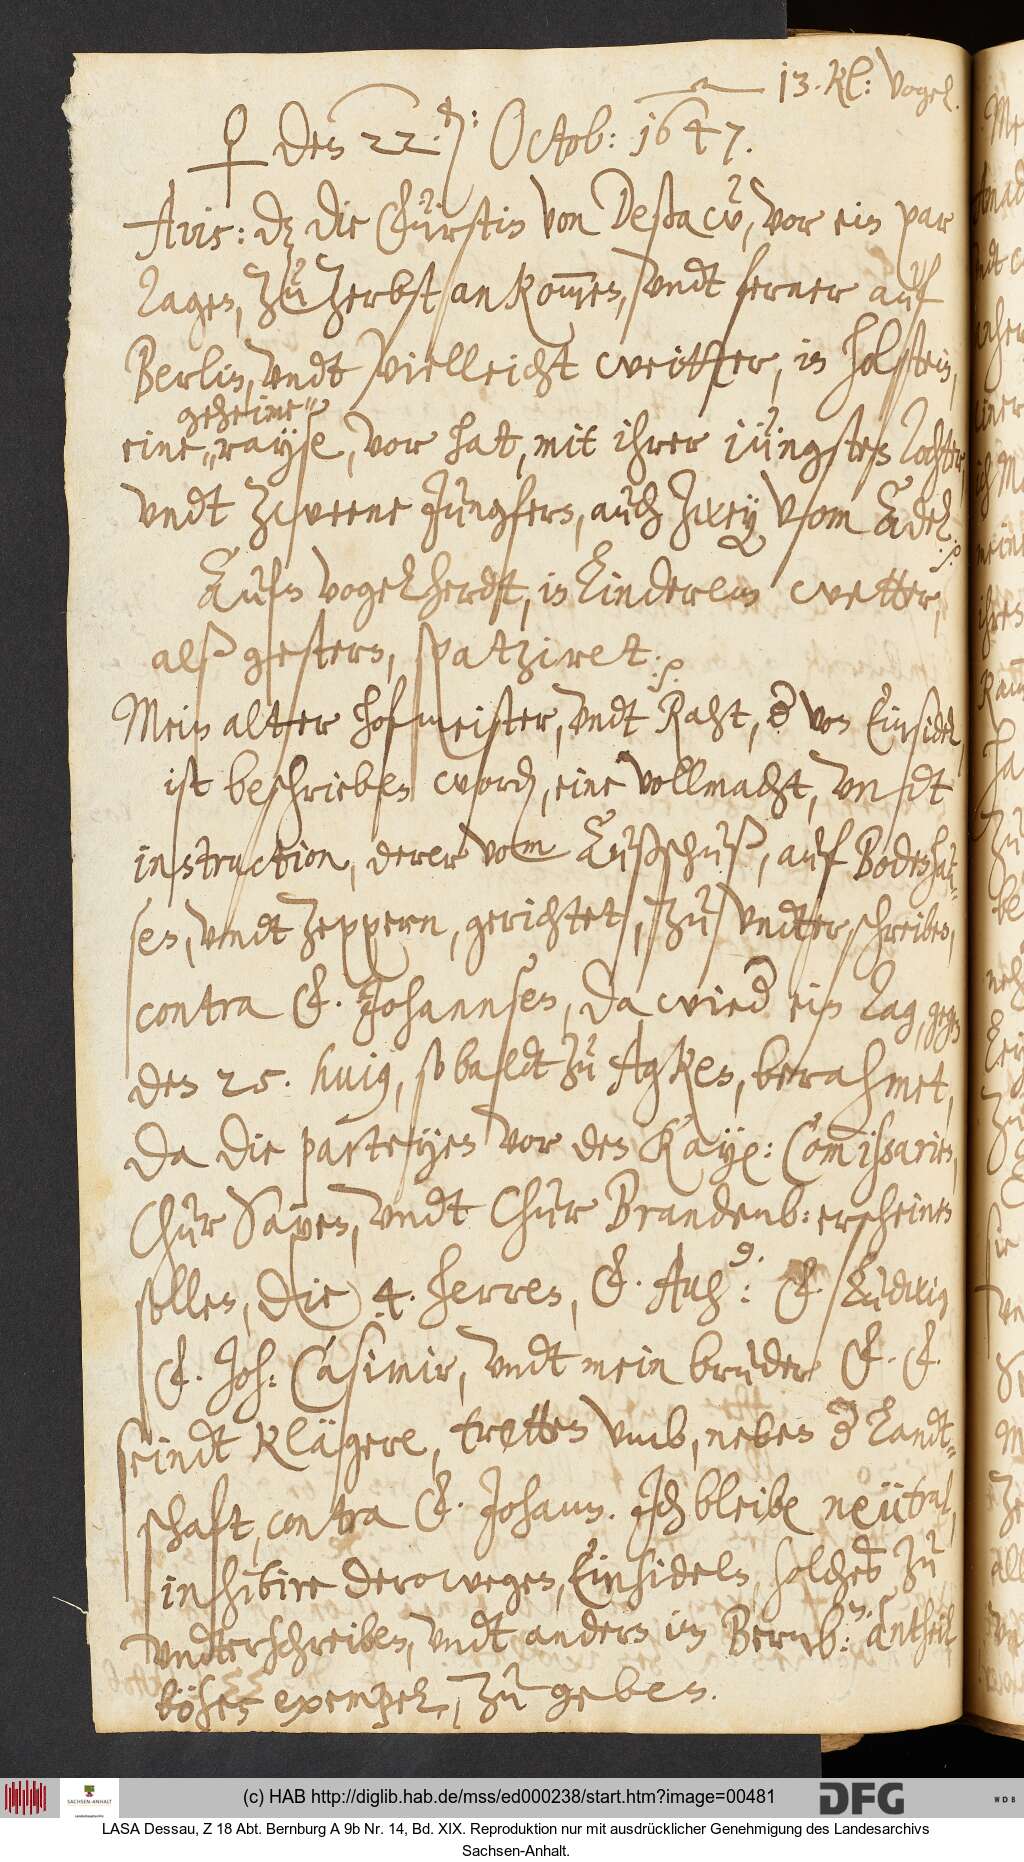 13. Kl: Vogel.
♀ den 22. den: Octob: 1647.
Avis: dz die Fürstin von Deßaw, vor ein par
tagen, zu Zerbst ankom̅en, undt ferner auf
Berlin, undt vielleicht weitter, in Holstein,
geheime"
eine„ rayse, vor hat, mit ihrer iüngsten Tochter
undt zweene Jungfern, auch Zwey vom Adel. /:
Aufn Vogelherdt, in linderem wetter,
alß gestern, spatziret. /:
Mein alter hofmeister, undt Raht, der von Einsidel
ist beschrieben worden, eine vollmacht, undt
instruction, derer vom Außschuß, auf Bodenhau-
sen, undt Zeppern, gerichtet, zu undterschreiben,
contra F. Johannsen, da wieder ein tag, gegen
den 25. huius, so baldt zu Agken, berahmet,
da die parteyen vor den Kayserl: Com̅issarien,
Chur Saxen, undt Chur Brandenb: erscheinen
sollen, die 4. herren, F. Aug: F. Ludwig
F. Joh: Casimir, undt mein bruder F. F.
seindt klägere, tretten umb, neben der Landt-
schaft, contra F. Johann. Ich bleibe neütral,
inhibire derowegen, Einsideln, solches zu
undterschreiben, undt andern im Bernb: antheil,
böses exempel, zu geben.
(c) HAB http://diglib.hab.de/mss/ed000238/start.htm?image=00481
SACHSEN-ANHALT
DFG
W D B
LASA Dessau, Z 18 Abt. Bernburg A 9b Nr. 14, Bd. XIX. Reproduktion nur mit ausdrücklicher Genehmigung des Landesarchivs
Sachsen-Anhalt.